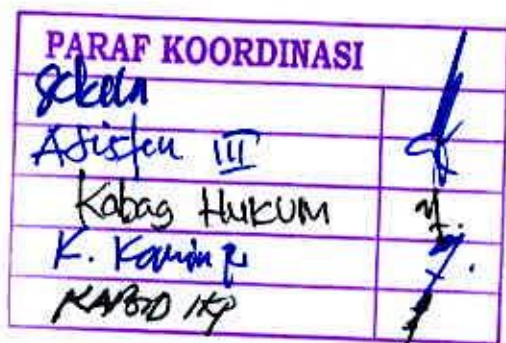 PARAF KOORDINASI
Sekda
Asisten III
Kabag HUKUM
KABID IKP